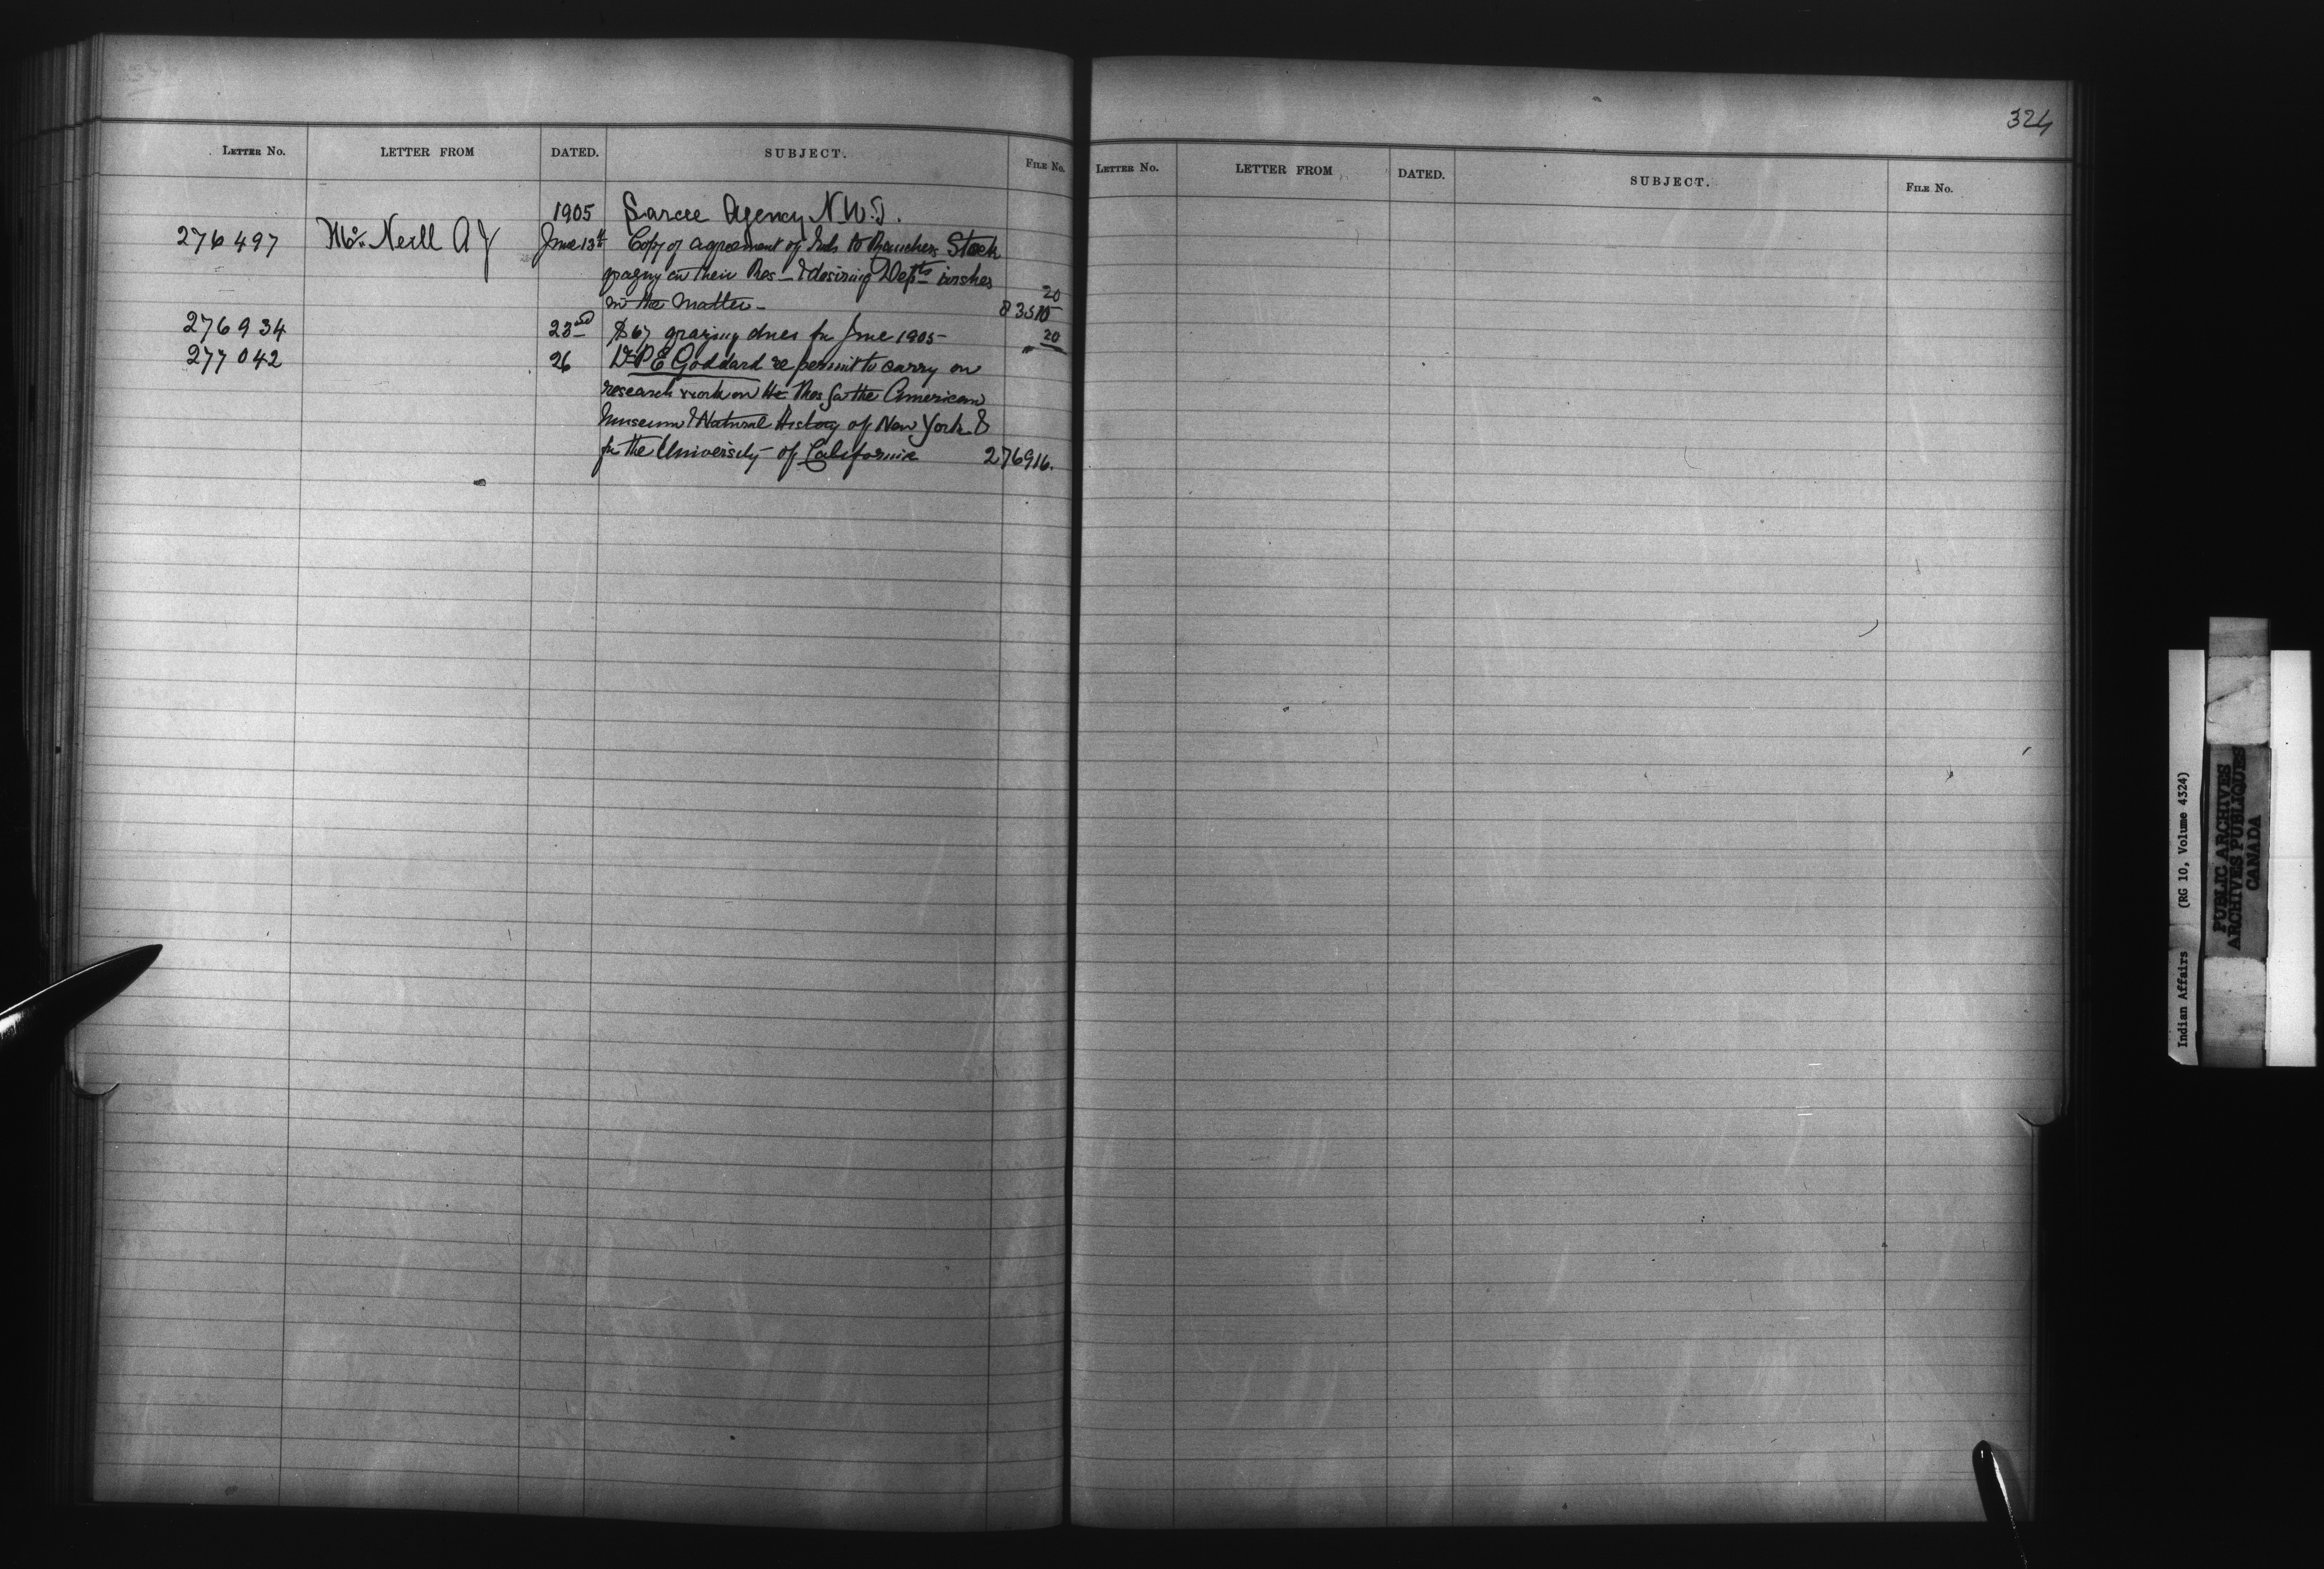 324
LETTER NO. LETTER FROM DATED. SUBJECT. FILE NO.
LETTER NO. LETTER FROM DATED. SUBJECT. FILE NO.
1905 Sarcee Agency N.W.T.
276497 McNeill A J June 13th Copy of agreement of Inds to Ranchers Stock
grazing on their Res - & desiring Depts wishes
in the matter - 83510 20
276934 23rd $67 grazing dues for June 1905 - " 20
277042 26 Dr P E Goddard re permit to carry on
research work on the Res for the American
Museum & Natural History of New York &
for the University of California 276916.
Indian Affairs (RG 10, Volume 4324)
PUBLIC ARCHIVES
ARCHIVES PUBLIQUES
CANADA